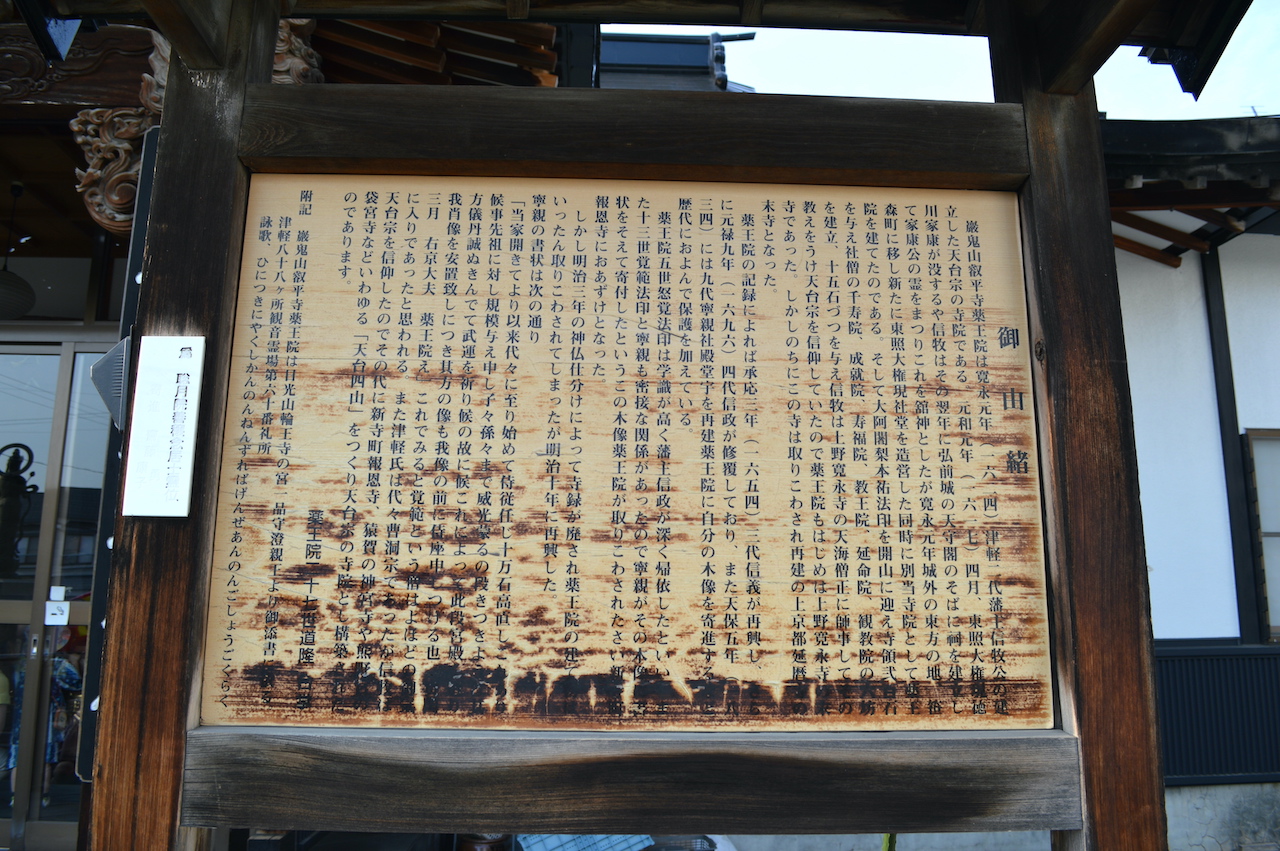 御山緒
巖鬼山叡平寺薬王院は寛永元年(一六二四)津軽二代藩主信牧公の建
立した天台宗の寺院である。元和元年(一六一七)四月 東照大権現徳
川家康が没するや信牧はその翌年に弘前城の天守閣のそばに祠を建立し
て家康公の霊をまつりこれを舘神としたが寛永元年城外の東方の地
森町に移し新たに東照大権現社堂を造営した同時に別当寺院として薬王
院を建てたのである。そして大阿闍梨本祐法印を開山に迎え寺領弐百石
を与え社僧の千寿院、成就院、寿福院、教王院、延命院、観教院の
を建立、十五石づつを与え信牧は上野寛永寺の天海僧正に師事してその
教えをうけ天台宗を信仰していたので薬王院もはじめは上野寛永寺の末
寺であった。しかしのちにこの寺は取りこわされ再建の上京都延暦寺の
末寺となった。
薬王院の記録によれば承応三年(一六五四)三代信義が再興し、
に元禄九年(一六九六)四代信政が修覆しており、また天保五年(
三四)には九代寧親社殿堂宇を再建薬王院に自分の木像を寄進する
歴代におよんで保護を加えている。
薬王院五世怒覚法印は学識が高く藩主信政が深く帰依したという。ま
た十三世覚範法印と寧親も密接な関係があったので寧親がその木像
状をそえて寄付したというこの木像薬王院が取りこわされたさい新
報恩寺におあずけとなった。
しかし明治三年の神仏仕分けによって寺録が廃され薬王院の建
いったん取りこわされてしまったが明治十年に再興した
寧親の書状は次の通り
「当家開きてより以来代々に至り始めて侍従任し十万石高直し
候事先祖に対し規模与え申し子々孫々まで威光蒙るの段きつきょ
方儀丹誠ぬきんでて武運を祈り候の故に候これによって此段宮殿
我肖像を安置致しにつき其方の像も我像の前に侍座申しつける也
三月 右京大夫 薬王院え」これでみると覚範という僧はよほどの
に入りであったと思われる。また津軽氏は代々曹洞宗であったが信
天台宗を信仰したのでその代に新寺町報恩寺、猿賀の神宮寺や熊野
袋宮寺などいわゆる「天台四山」をつくり天台宗の寺院とし構築され
のであります。
薬王院二十七世道隆
附記 巖鬼山叡平寺薬王院は日光山輪王寺の宮一品守澄親王より御添書
津軽八十八ヶ所観音霊場第六十番礼所
詠歌、ひにつきにやくしかんのんねんずればげんぜあんのんごしょうごくらく